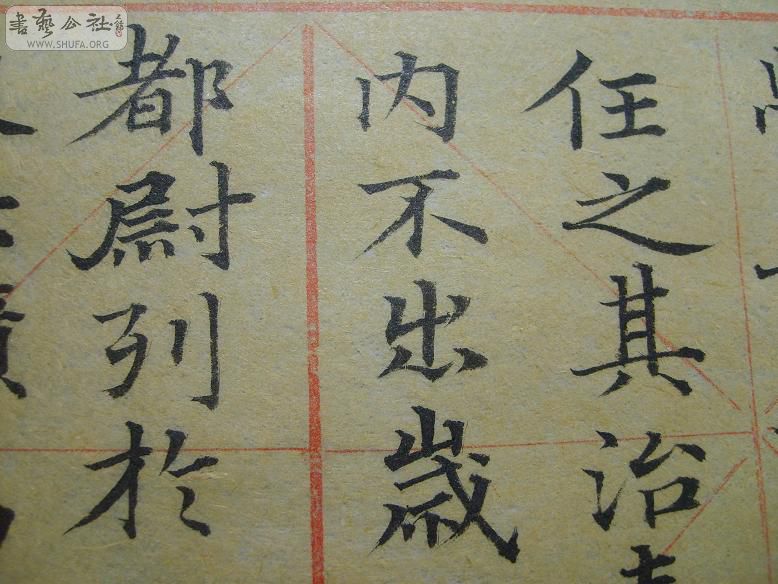 書藝公社
WWW.SHUFA.ORG
任之其治
内不出歲
都尉列於